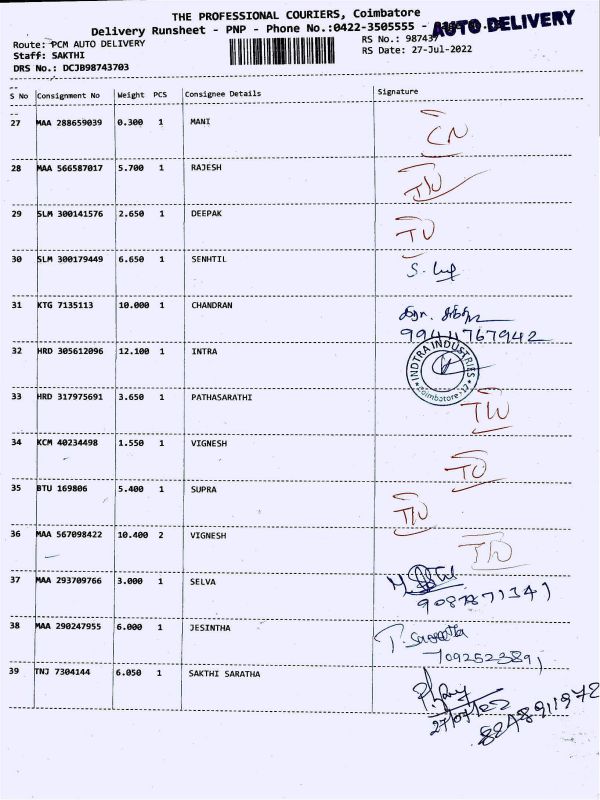 THE PROFESSIONAL COURIERS, Coimbatore
Delivery Runsheet - PNP - Phone No.:0422-3505555 -
AUTO DELIVERY
Route: PCM AUTO DELIVERY
RS No.: 987437
Staff: SAKTHI
RS Date: 27-Jul-2022
DRS No.: DCJB98743703
S No Consignment No Weight PCS Consignee Details Signature
27 MAA 288659039 0.300 1 MANI CN
28 MAA 566587017 5.700 1 RAJESH
29 SLM 300141576 2.650 1 DEEPAK
30 SLM 300179449 6.650 1 SENHTIL
31 KTG 7135113 10.000 1 CHANDRAN
9944767942
32 HRD 305612096 12.100 1 INTRA
INDTRA INDUSTRIES
Coimbatore-17
33 HRD 317975691 3.650 1 PATHASARATHI
34 KCM 40234498 1.550 1 VIGNESH
35 BTU 169806 5.400 1 SUPRA
36 MAA 567098422 10.400 2 VIGNESH
37 MAA 293709766 3.000 1 SELVA
9087871341
38 MAA 290247955 6.000 1 JESINTHA
7092523891
39 TNJ 7304144 6.050 1 SAKTHI SARATHA
27/07/22